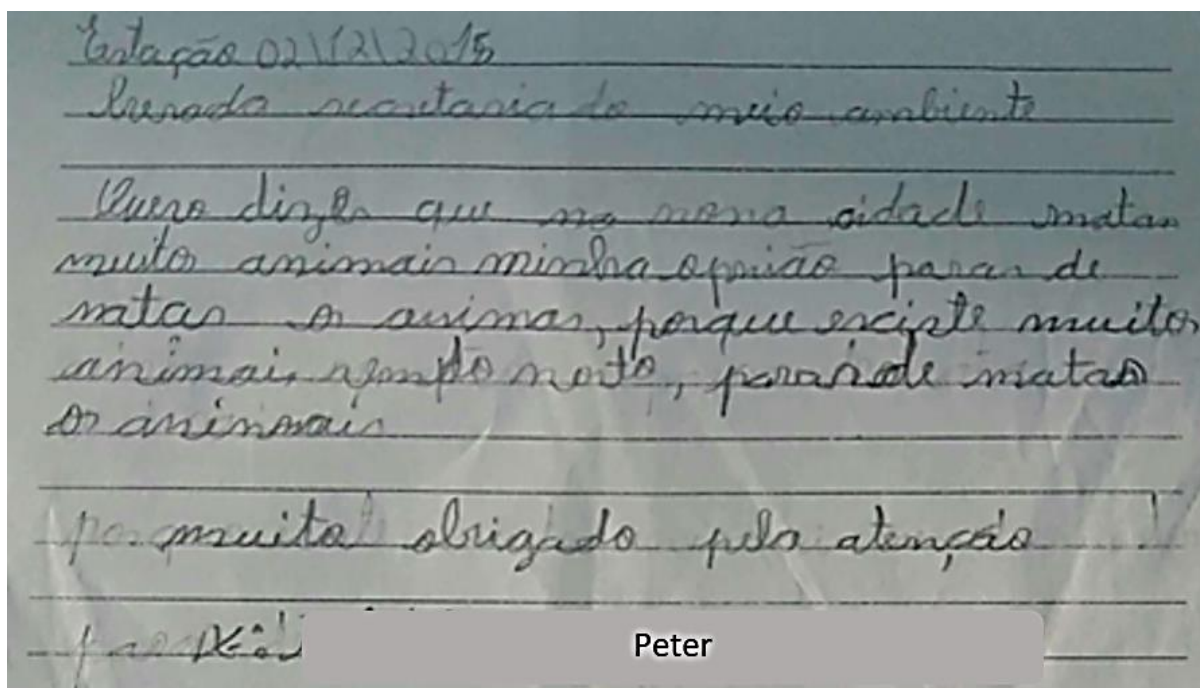 Estação 02\12\2015
Querada secretaria do meio ambiente
Quero dizer que na nona cidade matan
muitos animais minha opnião paran de
matan os animas, porque exciste muitos
animais sempdo morto, paran de matan
os aninmais
muito obrigado pela atenção !
Peter